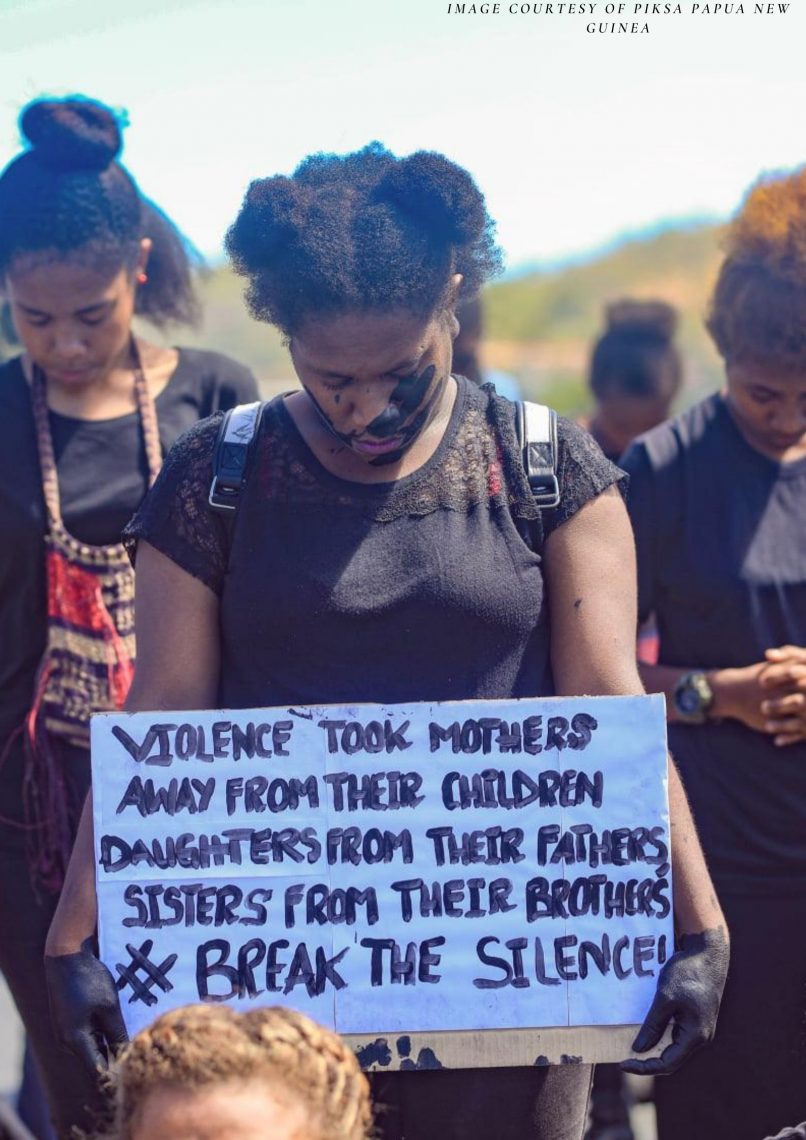 IMAGE COURTESY OF PIKSA PAPUA NEW
GUINEA
VIOLENCE TOOK MOTHERS
AWAY FROM THEIR CHILDREN
DAUGHTERS FROM THEIR FATHERS
SISTERS FROM THEIR BROTHERS
# BREAK THE SILENCE!